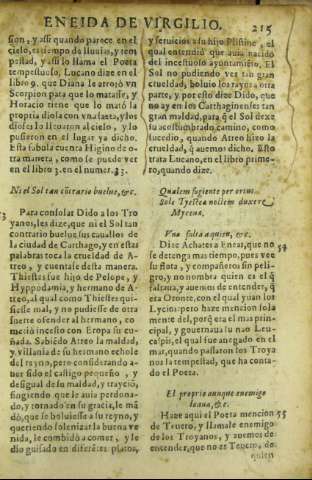 ENEIDA DE VIRGILIO.
215
sion, y assi quando parece en el
cielo, es tiempo de lluuias, y tem
pestad, y assi lo llama el Poeta
tempestuoso, Lucano dize en el
libro 9. que Diana le arrojò vn
Scorpion para que lo matasse, y
Horacio tiene que lo mató la
propria diosa con vna saeta, y los
dioses lo lleuaron al cielo, y lo
pusieron en el lugar ya dicho.
Esta fabula cuenta Higino de o-
tra manera, como se puede ver
en el libro 3. en el numer.
Ni el Sol tan cõtrario buelue, &c.
53
Para consolar Dido a los Tro
yanos, les dize, que ni el Sol tan
contrario buelue sus cauallos de
la ciudad de Carthago, y en estas
palabras toca la crueldad de A-
treo, y cuentase desta manera.
Thiestes fue hijo de Pelope, y
Hyppodamia, y hermano de A-
treo, al qual como Thiestes qui-
siesse mal, y no pudiesse de otra
suerte ofender al hermano, co-
metió incesto con Eropa su cu-
ñada. Sabiẽdo Atreo la maldad,
y villania de su hermano echole
del reyno, pero considerando a-
uer sido el castigo pequeño, y
desigual de su maldad, y trayció,
fingiendo que le auia perdona-
do, y tornado en su gracia, le mã
dò, que se boluiesse a su reyno, y
queriendo solenizar la buena ve
nida, le combidò a comer, y le
dio guisado en diferẽtes platos,
y seruicios a su hijo Plistine, el
qual entendiò que auia nacido
del incestuoso ayuntamiẽto. El
Sol no pudiendo ver tan gran
crueldad, boluio los rayos a otra
parte, y por esto dize Dido, que
no ay en los Carthaginenses tan
gran maldad, para q̃ el Sol dexe
su acostumbrado camino, como
sucedio, quando Atreo hizo la
crueldad, q̃ auemos dicho. Esto
trata Lucano, en el libro prime-
ro, quando dize.
Qualem fugiente per ortus
Sole Tyestea noctem duxere
Mycenæ.
Vno falta aquien, &c.
54
Dize Achates a Eneas, que no
se detenga mas tiempo, pues vee
su flota, y compañeros sin peli-
gro, y no nombra quien es el q̃
faltaua, y auemos de entender, q̃
era Oronte, con el qual yuan los
Lycios: pero haze mencion sola
mente del, porq̃ era el mas prin-
cipal, y gouernaua su nao Leu-
caspis, el qual fue anegado en el
mar, quando passaron los Troya
nos la tempestad, que ha conta-
do el Poeta.
El proprio aunque enemigo
loaua, &c.
55
Haze aqui el Poeta mencion
de Teucro, y llamale enemigo
de los Troyanos, y auemos de
entender, que no es Teucro, de
quien